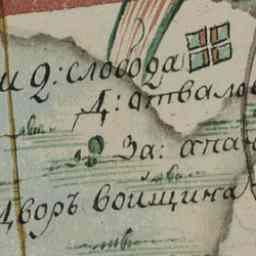 и Q: слобода
Д: отвало
За: апа
дворъ воищина